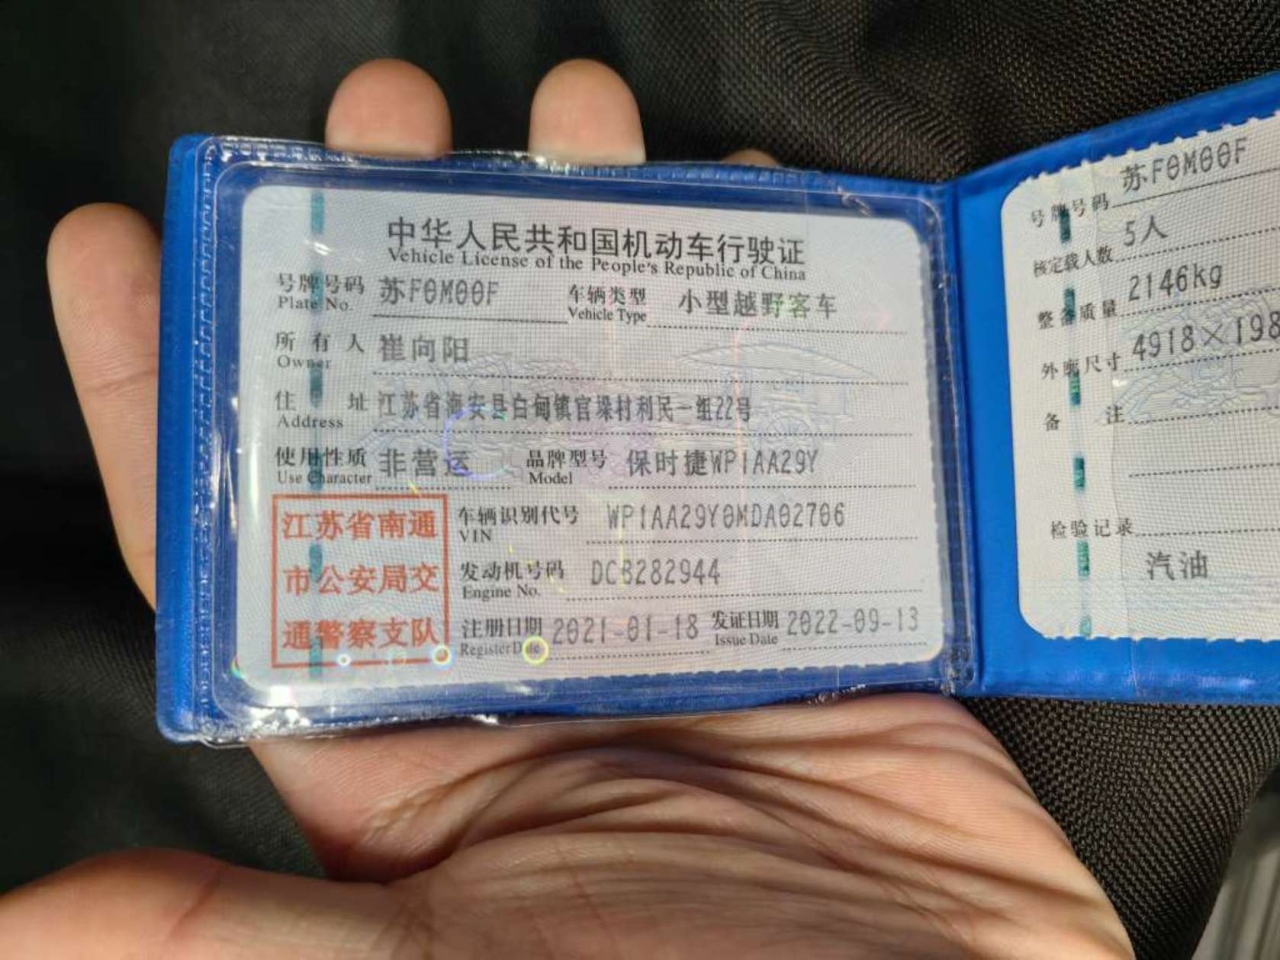 中华人民共和国机动车行驶证
Vehicle License of the People's Republic of China
号牌号码 苏F0M00F 车辆类型 小型越野客车
Plate No. Vehicle Type
所有人 崔向阳
Owner
住址 江苏省海安县白甸镇官垛村利民一组22号
Address
使用性质 非营运 品牌型号 保时捷WP1AA29Y
Use Character Model
江苏省南通
市公安局交
通警察支队
车辆识别代号 WP1AA29Y0MDA02706
VIN
发动机号码 DCB282944
Engine No.
注册日期 2021-01-18 发证日期 2022-09-13
Register Date Issue Date
号牌号码 苏F0M00F
核定载人数 5人
整备质量 2146kg
外廓尺寸 4918×198
备注
检验记录
汽油